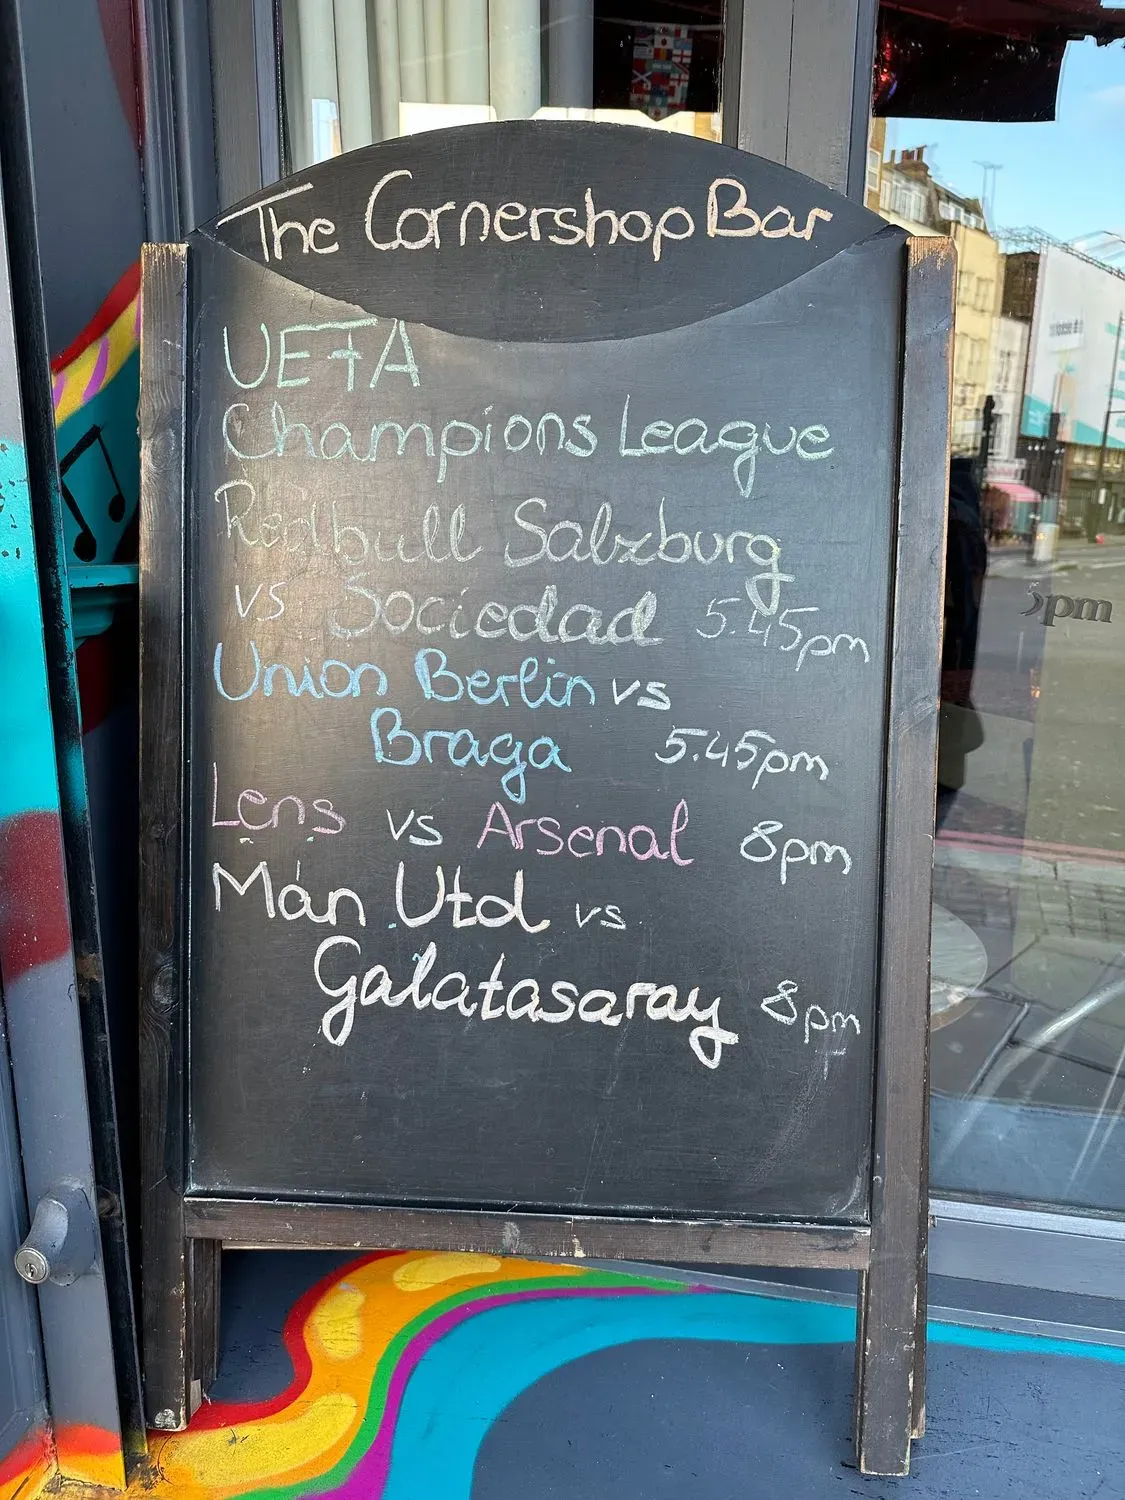 The Cornershop Bar
UEFA
Champions League
Redbull Salzburg
vs Sociedad 5.45pm
Union Berlin vs
Braga 5.45pm
Lens vs Arsenal 8pm
Man Utd vs
Galatasaray 8pm